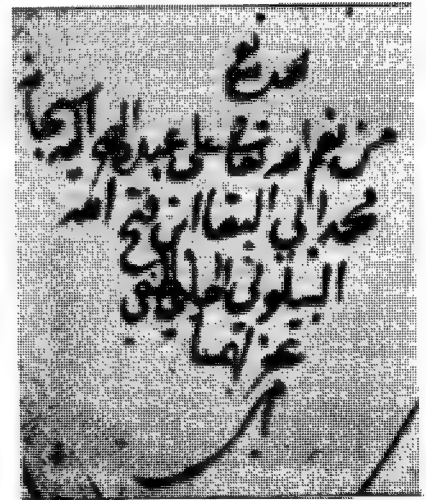 من نعم الله تعالى على عبده اليه سبحانه
محمد ابي البقا ابن فتح الله
البيلوني الحلبي
غفر لهما